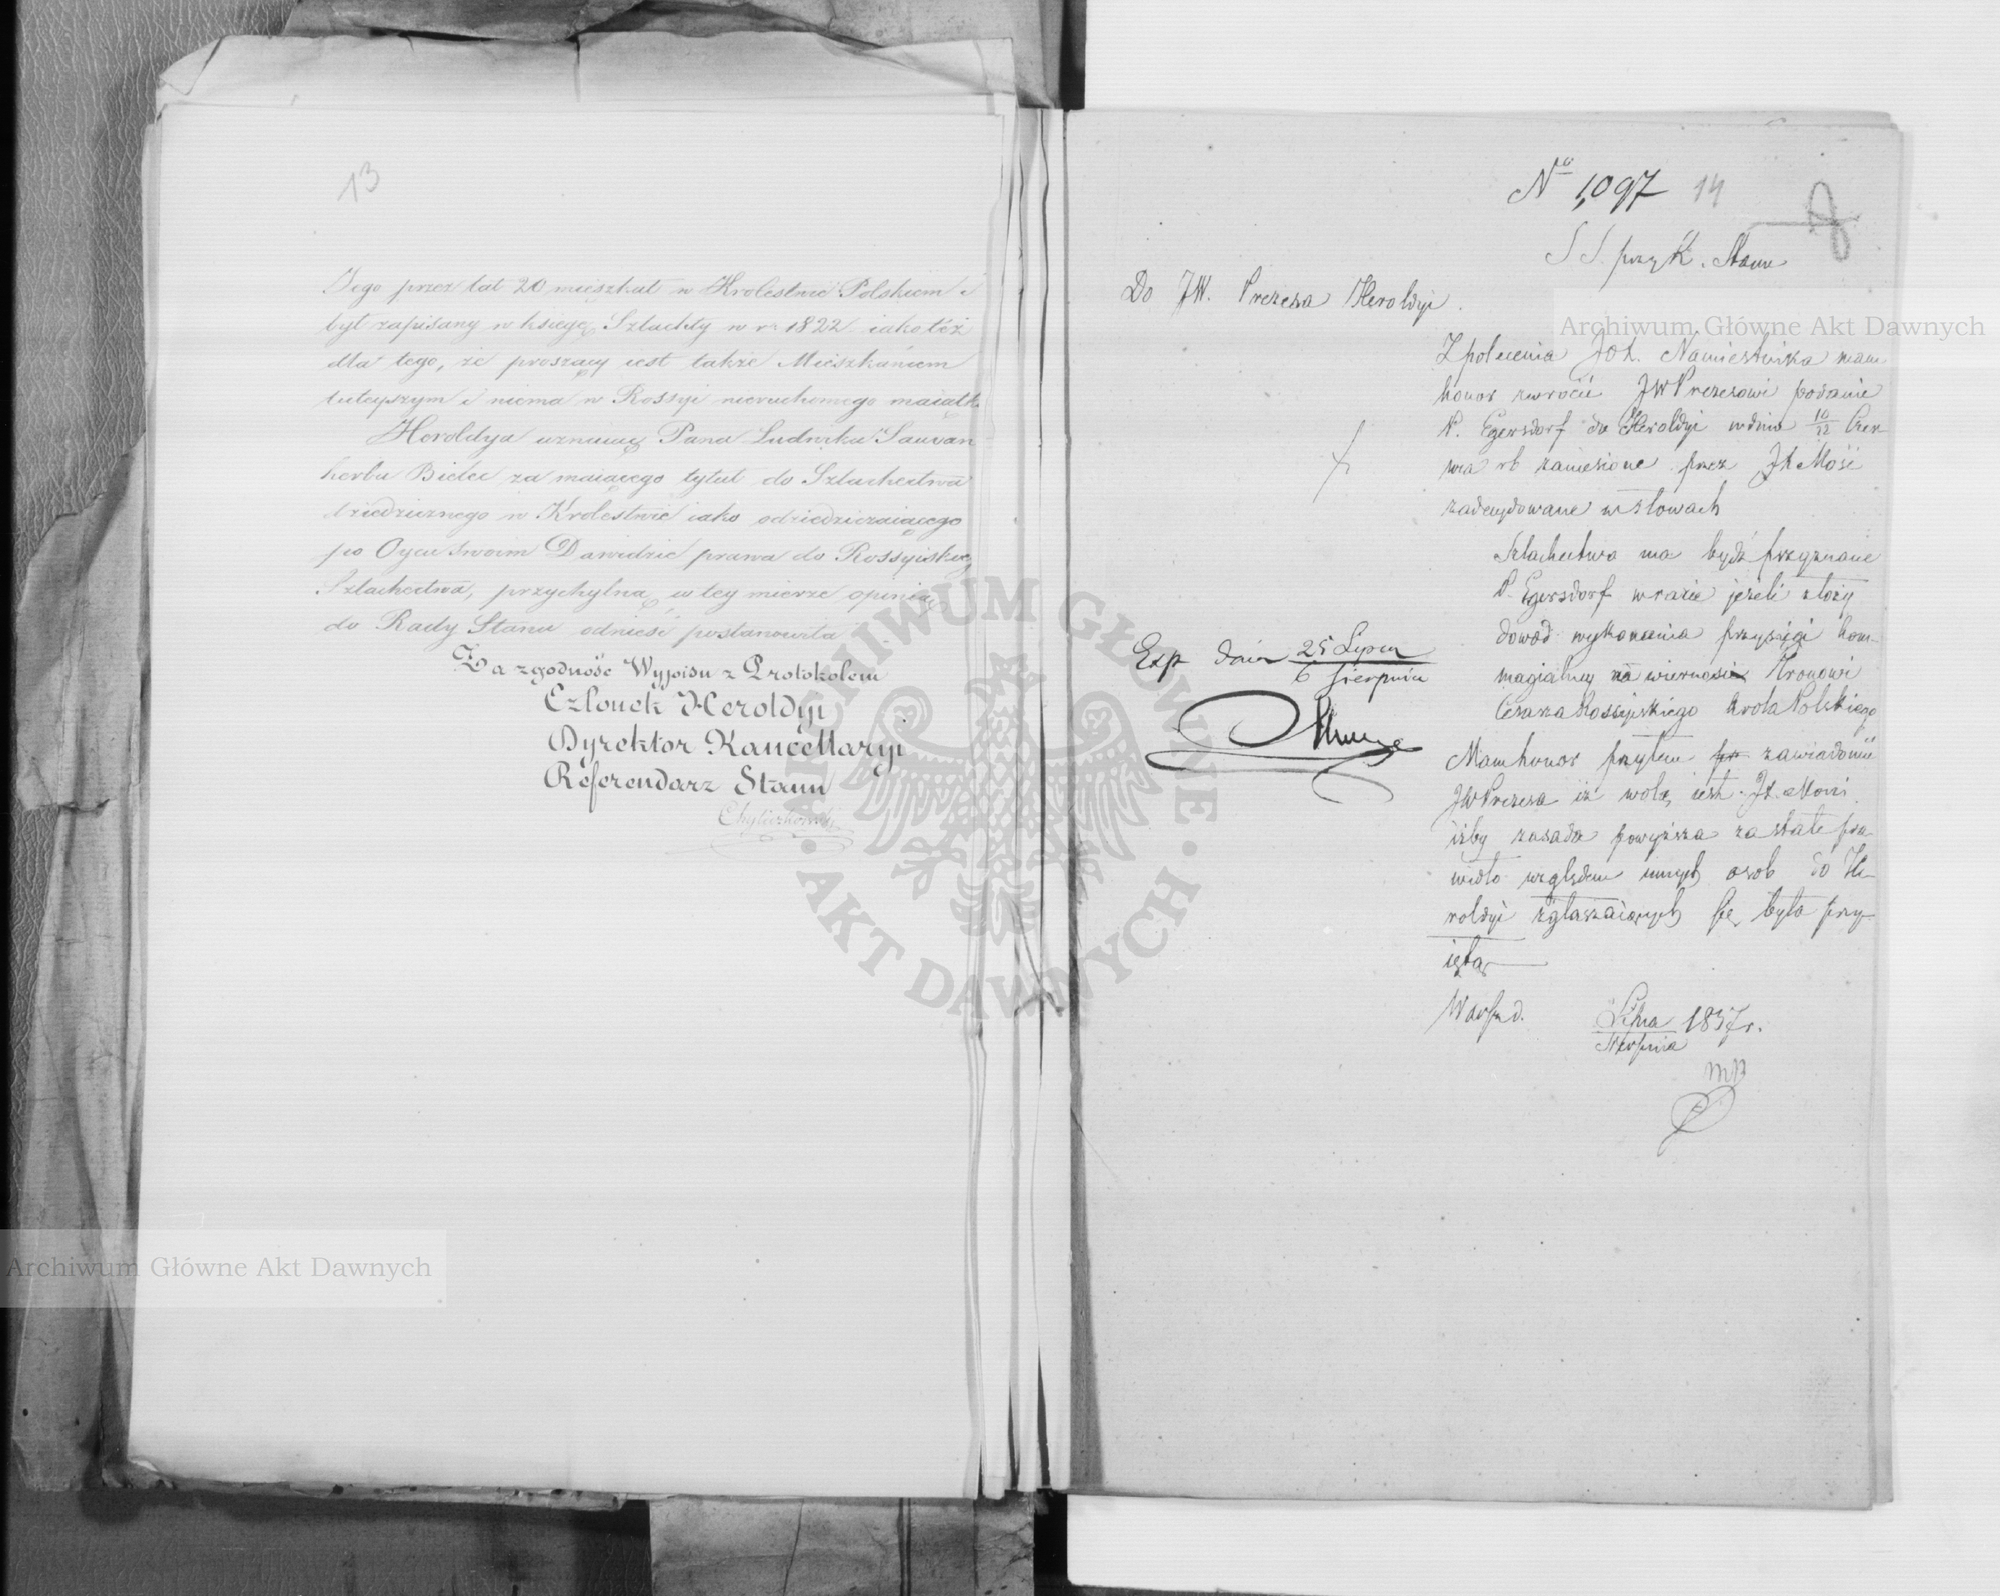 13
Jego przez lat 20 mieszkał w Krolestwie Polskiem i
był zapisany w księgę Szlachty w r. 1822 iako też
dla tego, że proszący iest także Mieszkańcem
tuteyszym i niema w Rossyi nieruchomego maiątk.
Heroldya uznaiąc Pana Ludwika Sauvan
herbu Bielec za maiącego tytuł do Szlachectwa
dziedzicznego w Krolestwie iako odziedziczaiącego
po Oycu swoim Dawidzie prawa do Rossyiskieg
Szlachectwa, przychylną w tey mierze opinią
do Rady Stanu odnieść postanowiła
Za zgodność Wypisu z Protokołem
Członek Heroldyi
Dyrektor Kancellaryi
Referendarz Stanu
Chyliczkowski
No 1,097 14
S S. przy R. Stanu
Do JW. Prezesa Heroldyi.
Z polecenia JOX. Namiestnika mam
honor zwrócić JW Prezesowi podanie
P. Egersdorf do Heroldyi w dniu 10/22 Czer-
wca rb zaniesione przez JX Mość
zadecydowane w słowach
Szlachectwo ma bydź przyznane
P. Egersdorf w razie jeżeli złoży
dowód wykonania przysięgi hom-
magialney na wierność Tronowi
Cesarza Rossyiskiego Krola Polskiego
Exp dnia 25 Lipca
6 Sierpnia
Mam honor przytem zawiadomić
JW Prezesa iż wolą iest JX. Mości
iżby zasada powyższa za stałe pra-
widło względem innych osob do He-
roldyi zgłaszaiących się była przy-
iętą
Warsz d. Lipca / Sierpnia 1837 r.
Archiwum Główne Akt Dawnych
Archiwum Główne Akt Dawnych
ARCHIWUM GŁÓWNE · AKT DAWNYCH ·